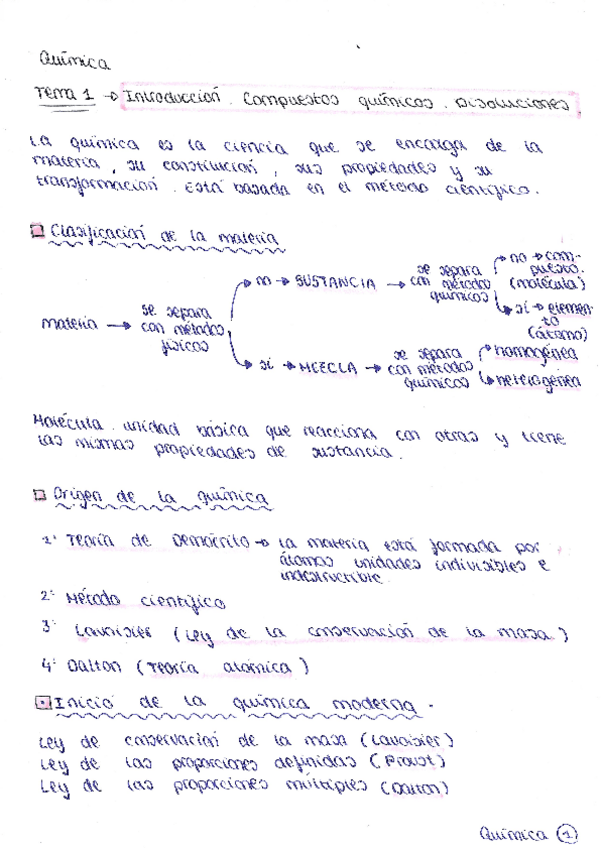 Química
Tema 1 → Introducción. Compuestos químicos. Disoluciones.
La química es la ciencia que se encarga de la
materia, su constitución, sus propiedades y su
transformación. Está basada en el método científico.
Clasificación de la materia
materia → se separa con métodos físicos
no → SUSTANCIA → se separa con métodos químicos
no → compuesto. (molécula)
sí → elemento (átomo)
sí → MEZCLA → se separa con métodos químicos
homogénea
heterogénea
Molécula. unidad básica que reacciona con otras y tiene
las mismas propiedades de sustancia.
Origen de la química
1º Teoría de Demócrito → la materia está formada por
átomos unidades indivisibles e
indestructible.
2º Método científico
3º Lavoisier (Ley de la conservación de la masa)
4º Dalton (Teoría atómica)
Inicio de la química moderna.
Ley de conservación de la masa (Lavoisier)
Ley de las proporciones definidas (Proust)
Ley de las proporciones múltiples (Dalton)
Química 1